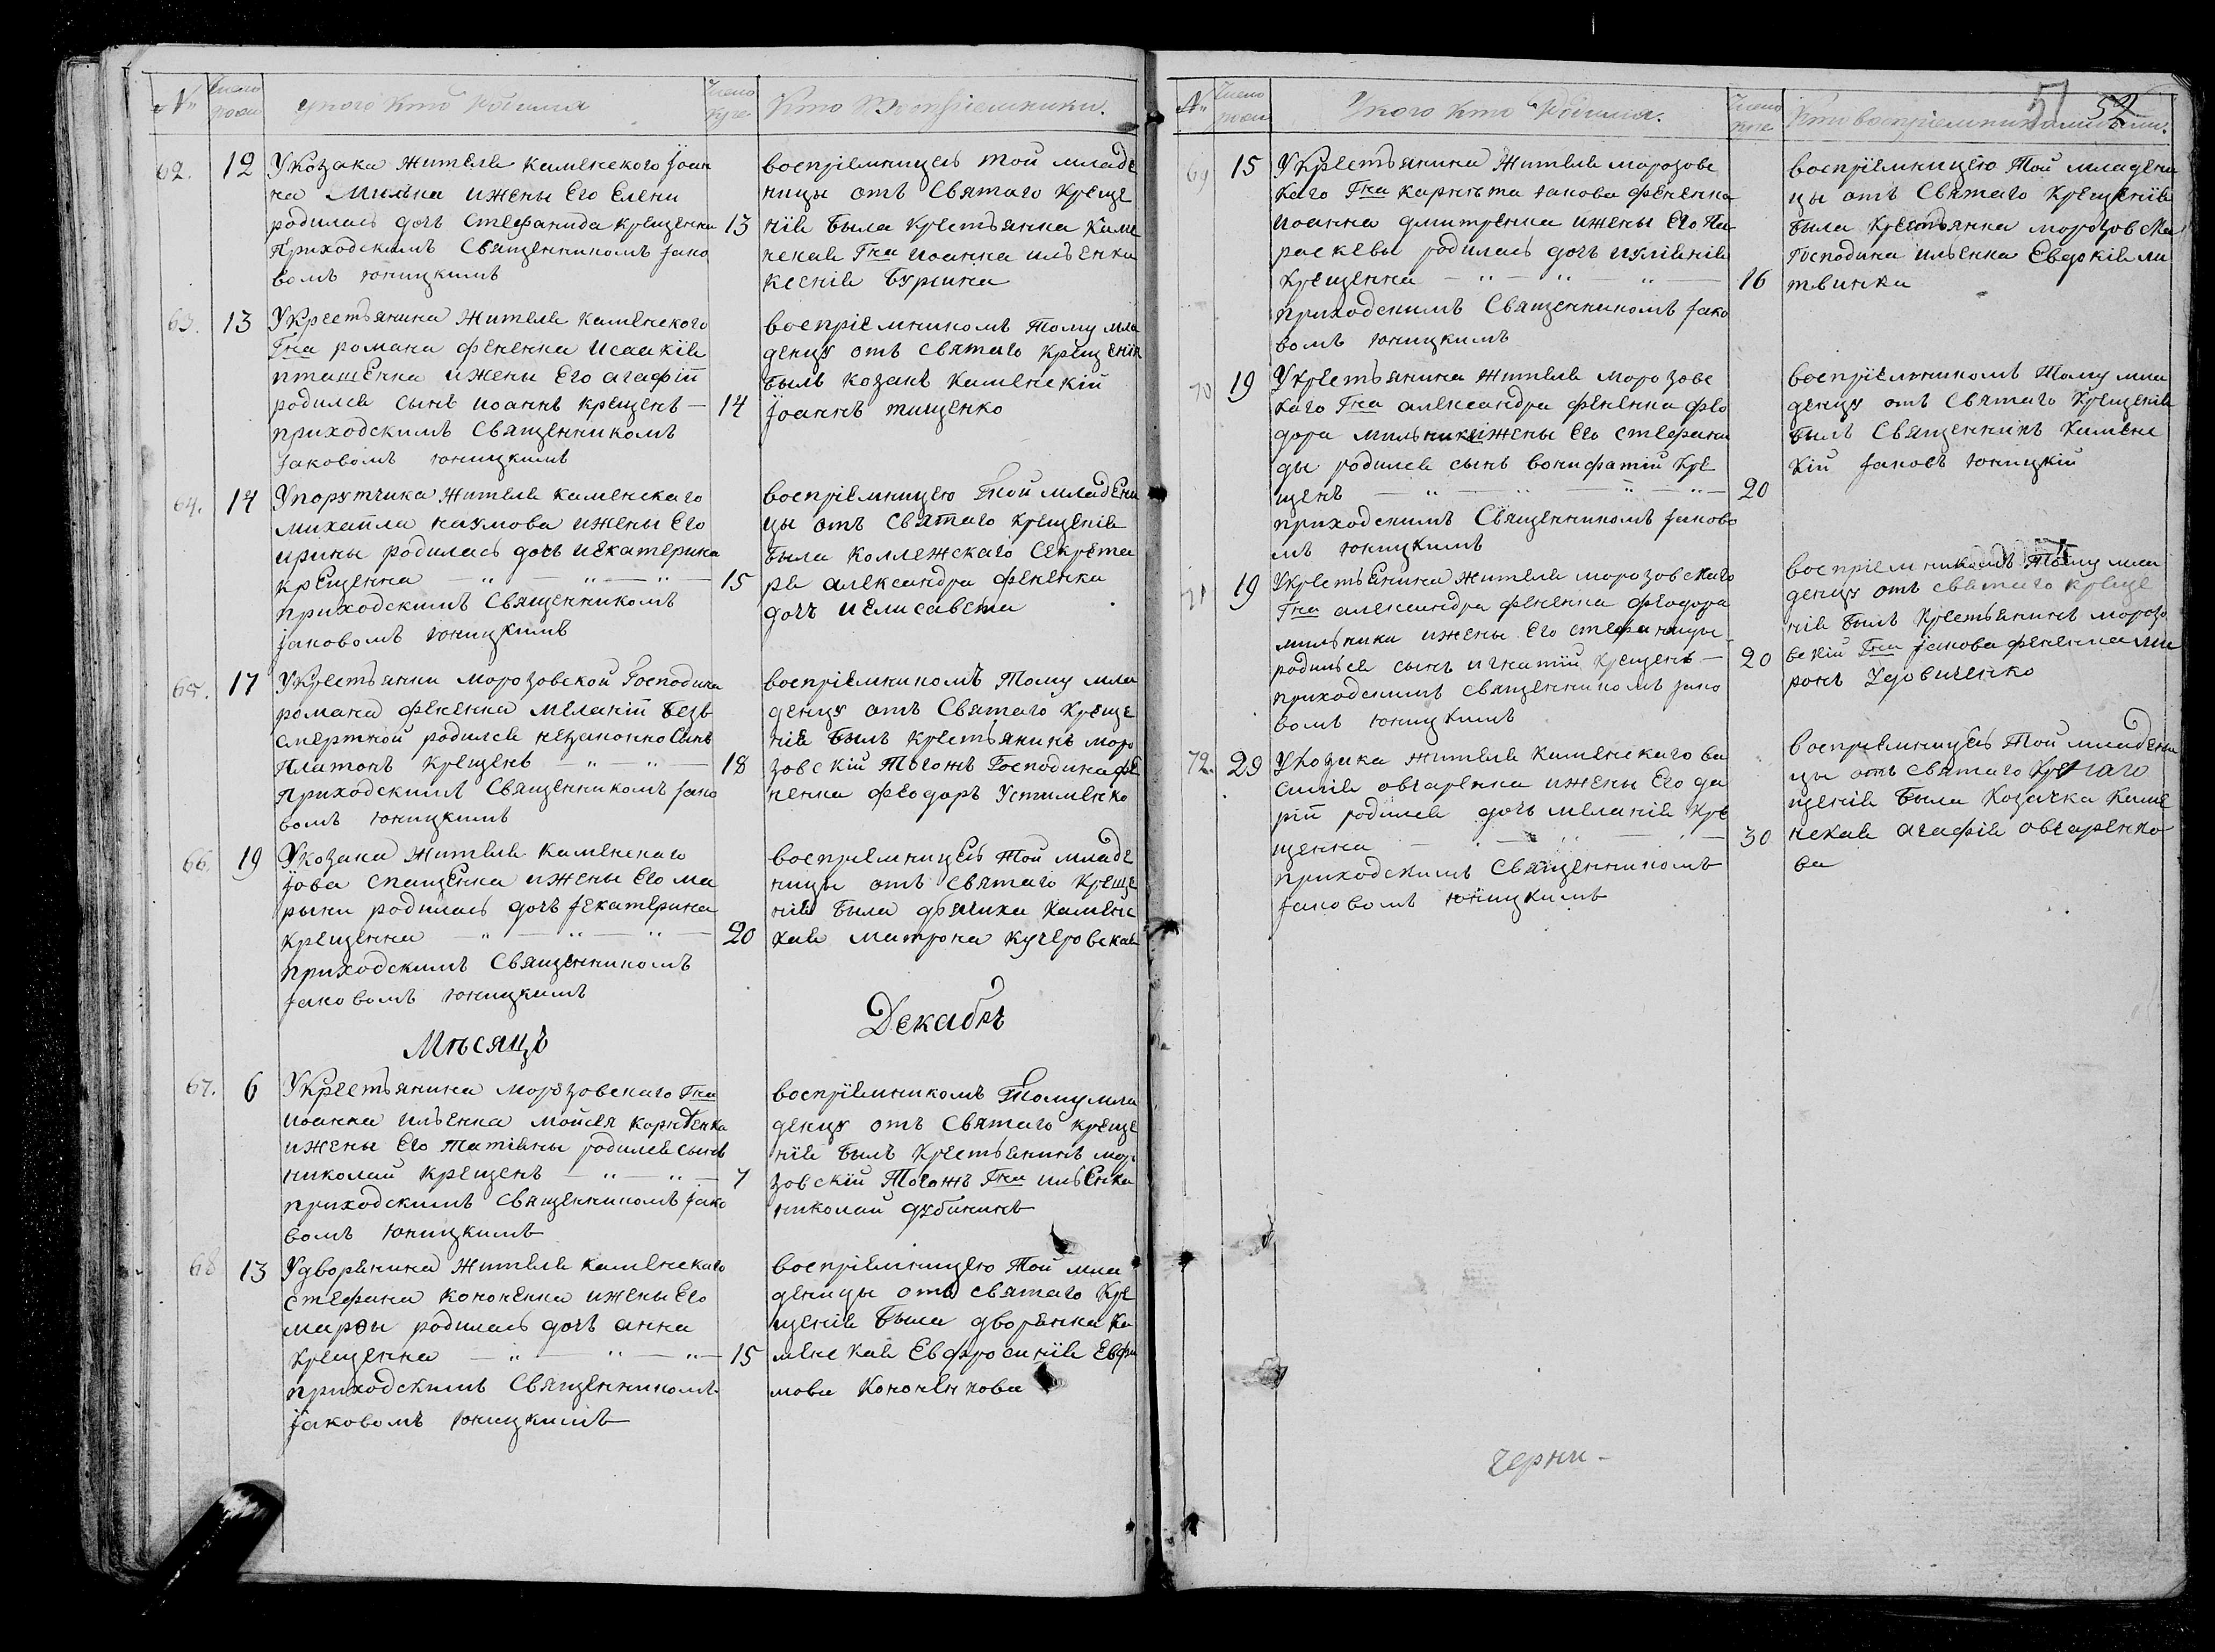 № Число роди у кого кто родился Число кре Кто Воспріемники.
62. 12 У Козака жителя каменского Іоан
на Мильна и жены Его Елени
родилась дочь Стефанида крещенна 13
Приходскимъ Священникомъ Іако
вомъ Юницкимъ
воспріемницею той младе
ницы отъ Святаго Креще
нія была Крестьянка Каме
нская Гна Иоанна ильенка
ксенія Бурдина
63. 13 У Крестьянина жителя каменского
Гна романа фененка Исаакія
пташенка и жены Его агафіи
родился сынъ иоаннъ крещенъ — 14
приходскимъ Священникомъ
Іаковомъ юницкимъ
воспріемникомъ тому мла
денцу отъ святаго крещенія
былъ козакъ Каменскій
Іоаннъ тищенко
64. 14 У порутчика жителя каменскаго
михаила наумова и жены Его
ирины родилась дочь иекатерина
крещенна — " — " — " — 15
приходскимъ Священникомъ
Іаковомъ юницкимъ
воспріемницею той младени
цы отъ святаго крещенія
была коллежскаго Секрета
ря александра фененка
дочь иелисавета
65. 17 У Крестьянки морозовской Господина
романа фененка мелании Безъ
смертной родился незаконно сынъ
Платонъ крещенъ — " — " — 18
Приходскимъ Священникомъ Іако
вомъ юницкимъ
воспріемникомъ тому мла
денцу отъ Святаго Креще
нія былъ крестьянинъ моро
зовскій тогожъ Господина фе
ненка феодоръ Устименко
66. 19 У козака жителя каменскаго
Іова спащенка и жены Его ма
рыни родилась дочь Іекатерина
крещенна — " — " — " — 20
приходскимъ Священникомъ
Іаковомъ юницкимъ
воспріемницею той младе
ницы отъ святаго креще
нія была дячиха Каменс
кая матрона кучеровская
Мѣсяцъ Декабрь
67. 6 У Крестьянина морозовскаго Гна
иоанна ильенка мойсея корнѣенка
и жены Его татіяны родился сынъ
николай крещенъ — " — " — 7
приходскимъ Священникомъ Іако
вомъ юницкимъ
воспріемникомъ тому мла
денцу отъ Святаго креще
нія былъ крестьянинъ моро
зовскій тогожъ Гна ильенка
николай дубининъ
68 13 У дворянина жителя каменскаго
стефана кононенка и жены Его
марѳы родилась дочь анна
крещенна — " — " — " — 15
приходскимъ Священникомъ
Іаковомъ юницкимъ
воспріемницею той мла
деницы отъ святаго Кре
щенія была дворянка Ка
менская Евфросинія Ефи
мова Кононенкова
51 52
№ Число роди У кого кто родился. Число кре Кто воспріемниками были.
69 15 У Крестьянина жителя морозовс
каго Гна карнета якова фененка
иоанна дмитренка и жены Его Па
раскевы родилась дочь иуліянія
крещенна — " — " — " — 16
приходскимъ Священникомъ Іако
вомъ юницкимъ
воспріемницею той младени
цы отъ Святаго крещенія
была крестьянка морозовская
Господина ильенка Евдокія ли
твинка
70 19 У крестьянина жителя морозовс
каго Гна александра фененка фео
дора мильника и жены Его стефани
ды родился сынъ вонифатій кре
щенъ — " — " — " — " — 20
приходскимъ Священникомъ Іаково
мъ юницкимъ
воспріемникомъ тому мла
денцу отъ Святаго Крещенія
былъ Священникъ Каменс
кій Іаковъ юницкій
71 19 У крестьянина жителя морозовскаго
Гна александра фененка феодора
мильника и жены Его стефаниды
родился сынъ игнатій крещенъ — 20
приходскимъ священникомъ Іако
вомъ юницкимъ
воспріемникомъ тому мла
денцу отъ святаго креще
нія былъ крестьянинъ морозо
вскій Гна Іакова фененка ми
ронъ Удовиченко
72. 29 У Козака жителя каменскаго ва
силія овчаренка и жены Его да
ріи родилася дочь меланія кре
щенна 30
приходскимъ Священникомъ
Іаковомъ юницкимъ
воспріемницею той младени
цы отъ святаго
щенія была Козачка Каме
нская агафія овчаренко
ва
черни-